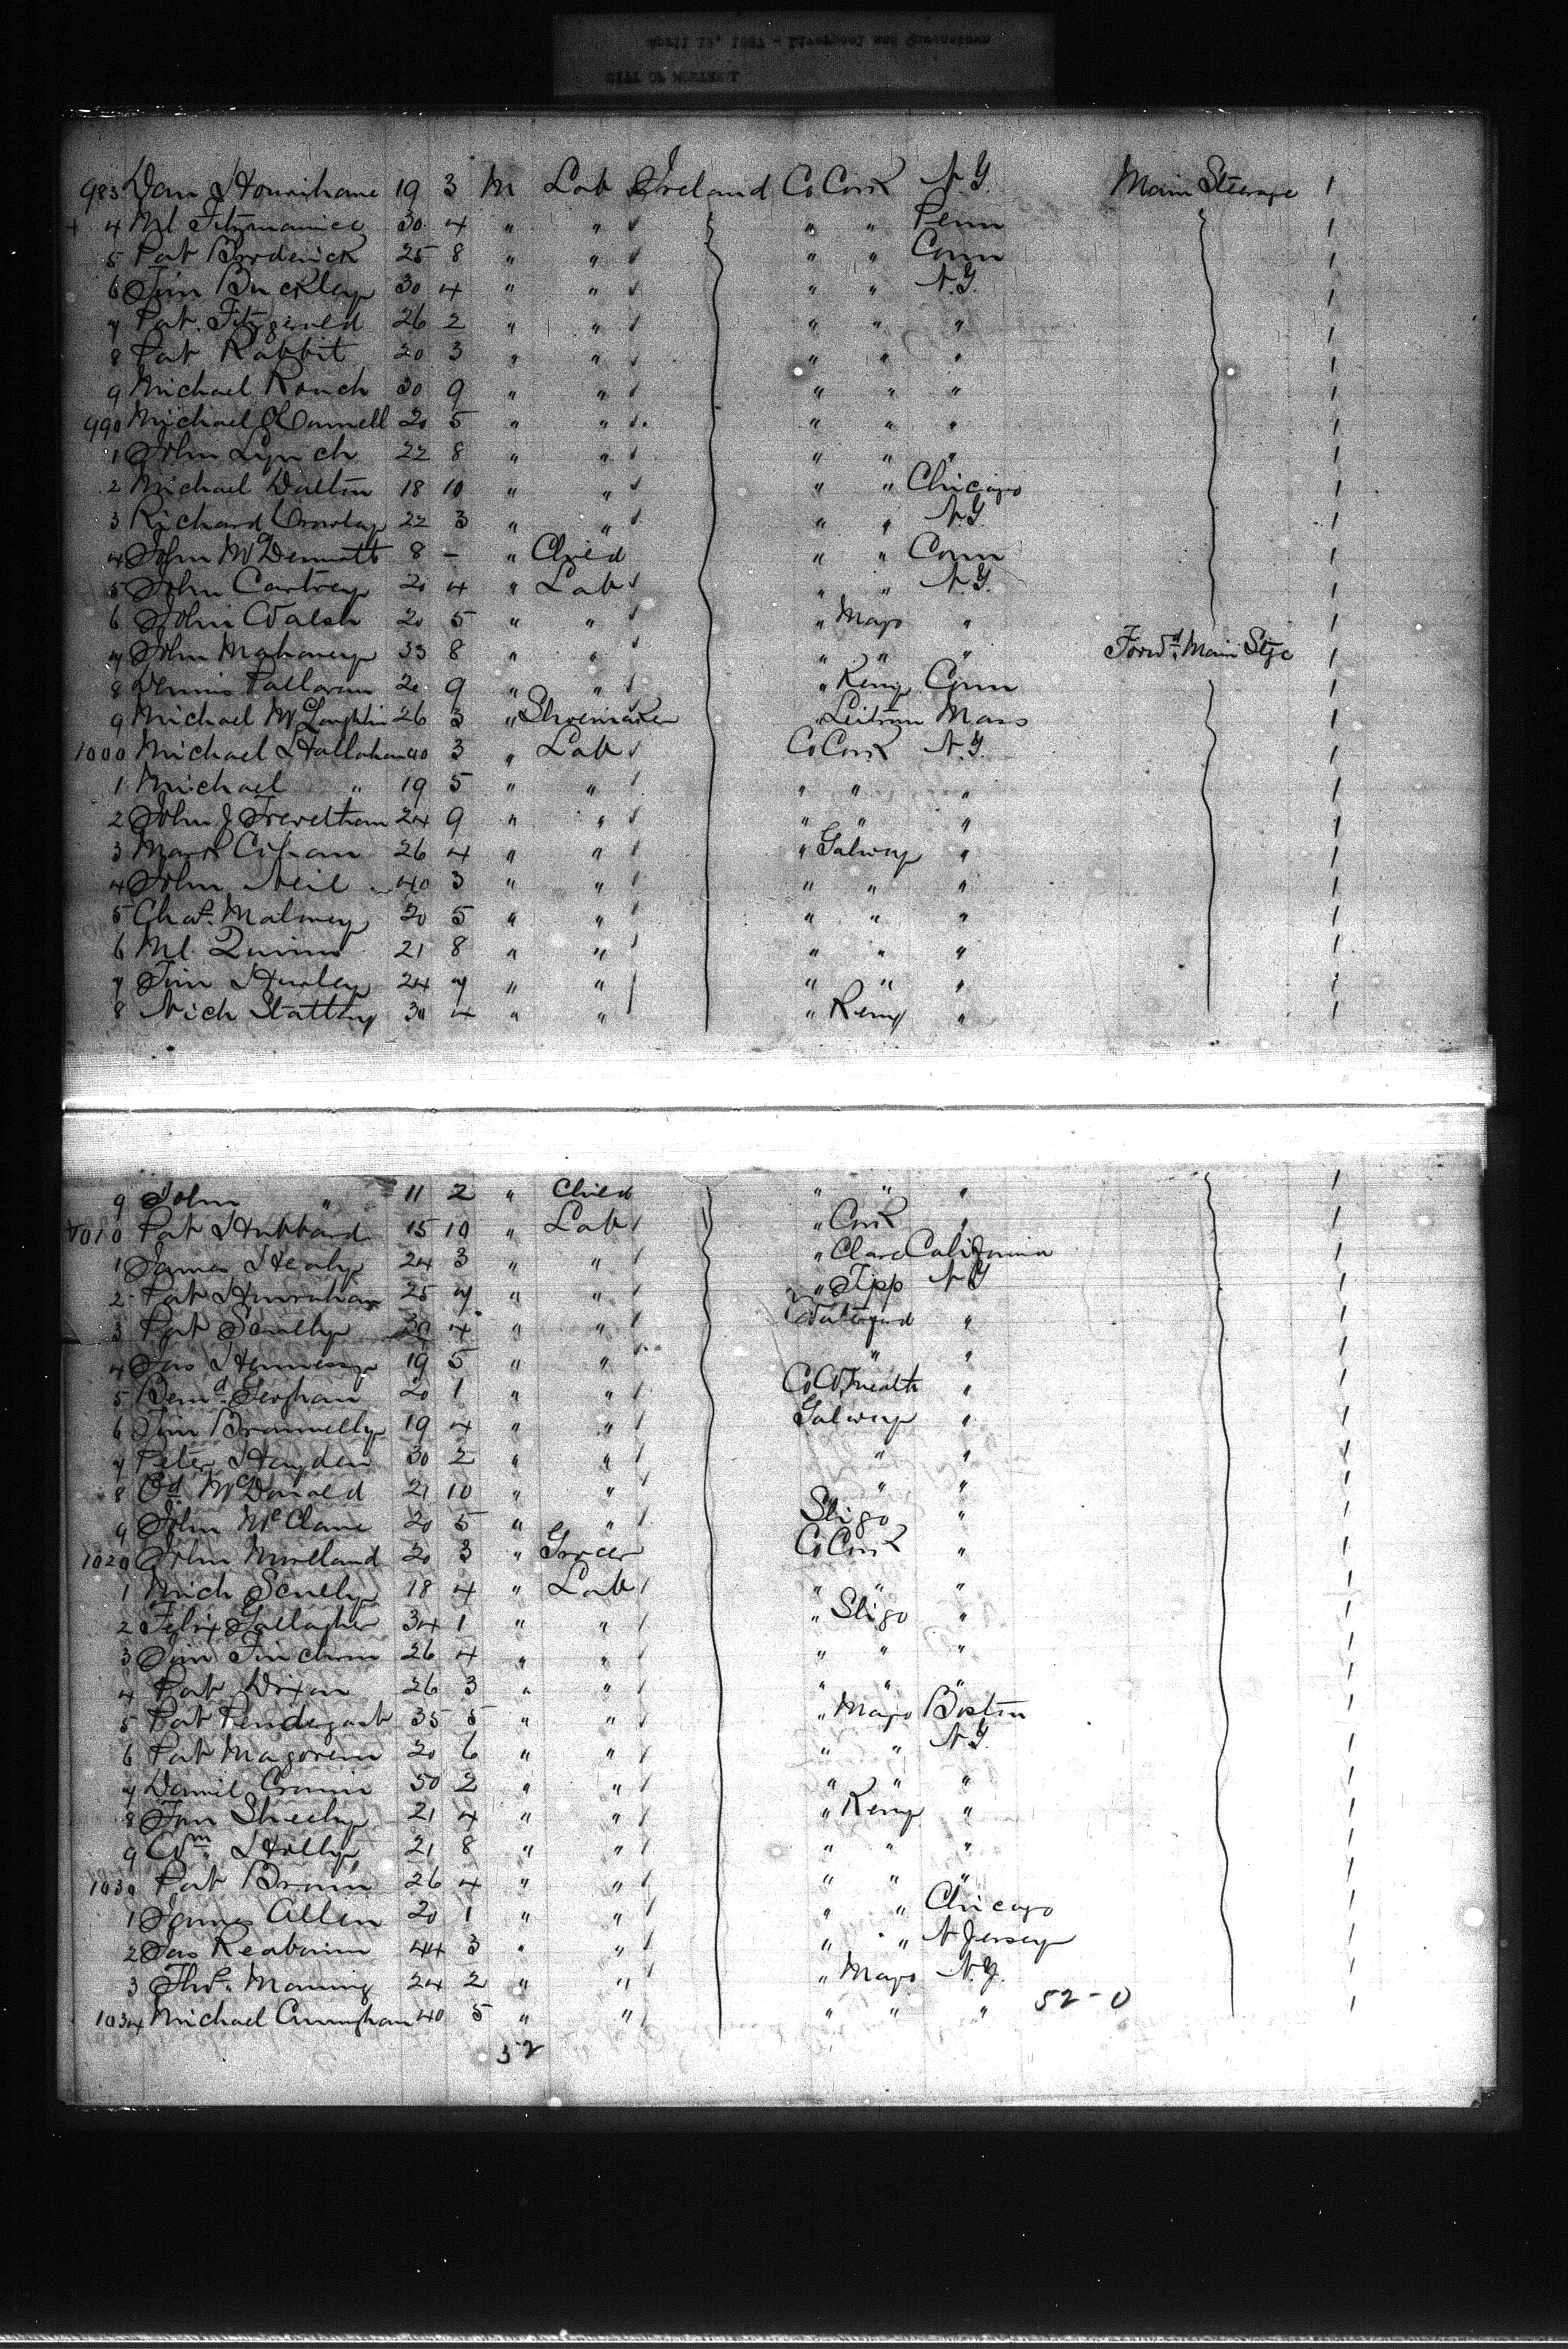 983 Dan Hourihane 19 3 M Lab Ireland Co Cork N.Y. Main Steerage 1
+ 4 Ml Fitzmaurice 30 4 " " " " Penn 1
5 Pat Broderick 25 8 " " " " Conn 1
6 Tim Buckley 30 4 " " " " N.Y. 1
7 Pat. Fitzgerald 26 2 " " " " " 1
8 Pat Rabbit 20 3 " " " " " 1
9 Michael Roach 30 9 " " " " " 1
990 Michael O'Connell 20 5 " " " " " 1
1 John Lynch 22 8 " " " " " 1
2 Michael Dalton 18 10 " " " " Chicago 1
3 Richard Crowley 22 3 " " " " N.Y. 1
4 John McDermott 8 - " Child " " Conn 1
5 John 20 4 " Lab " " N.Y. 1
6 John Walsh 20 5 " " " Mayo " 1
7 John Mahoney 33 8 " " " " " Forwd. Main Stge 1
8 Dennis 20 9 " " " Kerry Conn 1
9 Michael McLoughlin 26 3 " Shoemaker " Leitrim Mass 1
1000 Michael Hallahan 40 3 " Lab Co Cork N.Y. 1
1 Michael " 19 5 " " " " " 1
2 John J 24 9 " " " " " 1
3 Mark 26 4 " " " Galway " 1
4 John Neil 40 3 " " " " " 1
5 Chas. Maloney 20 5 " " " " " 1
6 Ml. Quinn 21 8 " " " " " 1
7 Tim Hurley 24 7 " " " " " 1
8 Mich Slattery 30 4 " " " Kerry " 1
9 John " 11 2 " Child " " " 1
1010 Pat Hubbard 15 10 " Lab " Cork " 1
1 James Healy 24 3 " " " Clare California 1
2 Pat Hanrahan 25 7 " " " Tipp N.Y 1
3 Pat Scully 4 " " Waterford " 1
4 Jas Hennessy 19 5 " " " " 1
5 Bernd. 20 1 " " Co W,meath " 1
6 Tim Brannelly 19 4 " " Galway " 1
7 Peter Hayden 30 2 " " " " 1
8 Ed McDonald 21 10 " " " " 1
9 John McClane 20 5 " " Sligo " 1
1020 John Moreland 20 3 " Grocer Co Cork " 1
1 Mich Scully 18 4 " Lab " " " 1
2 Felix Gallagher 34 1 " " " Sligo " 1
3 Tim 26 4 " " " " " 1
4 Pat Dixon 26 3 " " " " " 1
5 Pat Pendergast 35 5 " " " Mayo Boston 1
6 Pat 20 6 " " " " N.Y. 1
7 Daniel Cronin 50 2 " " " " " 1
8 Sheehy 21 4 " " " Kerry " 1
9 Wm. Holly 21 8 " " " " " 1
1030 Pat 26 4 " " " " " 1
1 James Allen 20 1 " " " " Chicago 1
2 Jas 44 3 " " " " N Jersey 1
3 Thos. Manning 24 2 " " " Mayo N.Y. 1
1034 Michael Cunningham 40 5 " " " " " 52-0 1
52